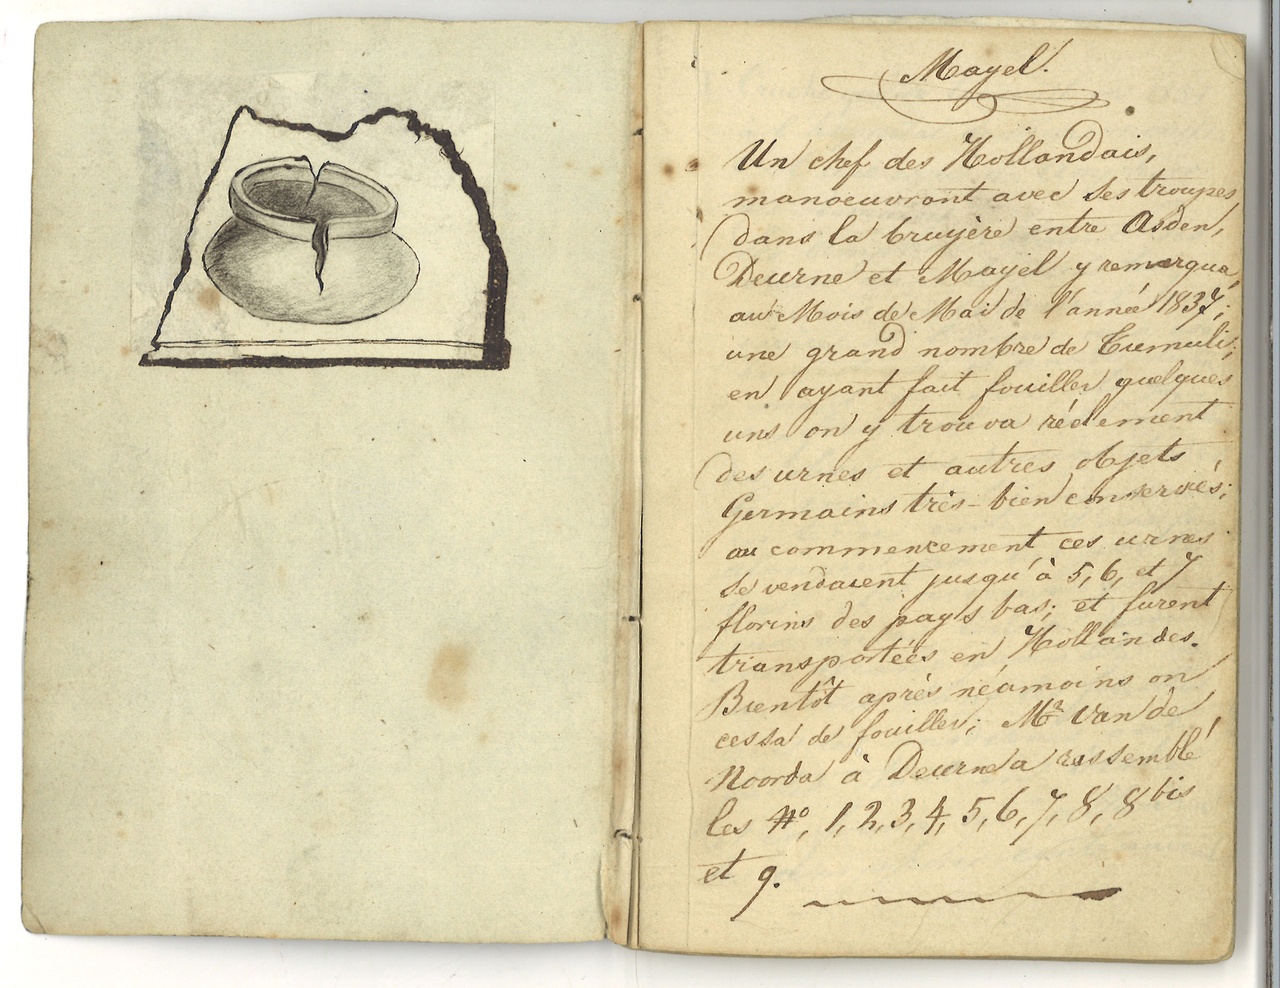 Mayel.
Un chef des Hollandais,
manoeuvront avec ses troupes,
dans la bruyère entre Asden,
Deurne et Mayel y remarqua,
au Mois de Mai de l'année 1837;
une grand nombre de Tumuli;
en ayant fait fouiller quelques
uns on y trouva réelement
des urnes et autres objets
Germains très-bien conservés;
au commencement ces urnes
se vendaient jusqu'à 5, 6, et 7
florins des pays bas; et furent
transportées en Hollandes.
Bientôt après néamoins on
cessa de fouiller; Mr van de
Noorda à Deurne a rassemblé
les No, 1, 2, 3, 4, 5, 6, 7, 8, 8 bis
et 9.